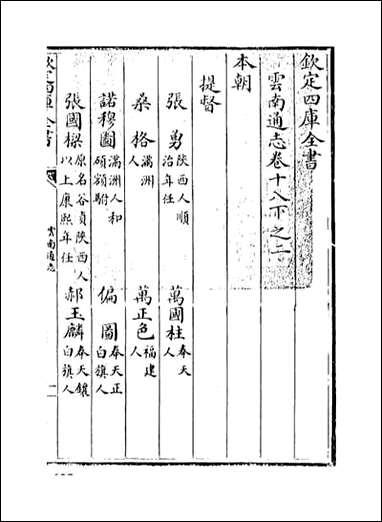 欽定四庫全書
雲南通志卷十八下之二
本朝
提督
張勇 陝西人順治年任 萬國柱 奉天人
桑格 滿洲人 萬正色 福建人
諾穆圖 滿洲人和碩額駙 偏圖 奉天正白旗人
張國樑 原名谷貞陝西人以上康熙年任 郝玉麟 奉天鑲白旗人
欽定四庫全書 雲南通志 二